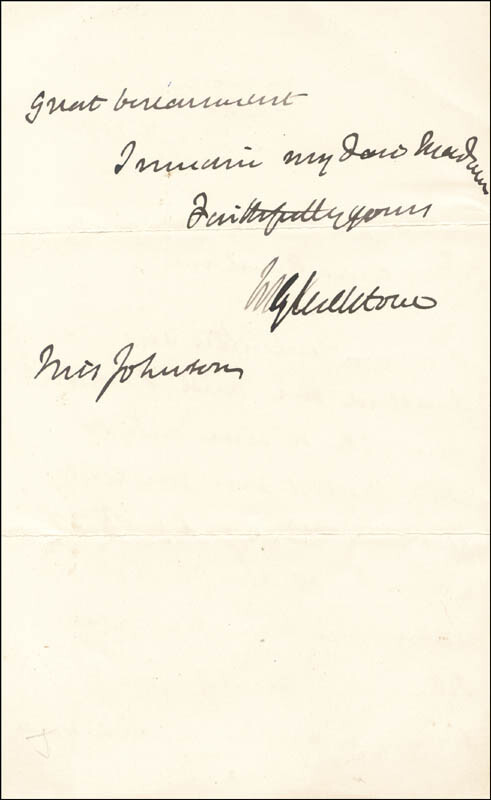 great bereavement
I remain my dear Madam
Faithfully yours
WGladstone
Mrs Johnson